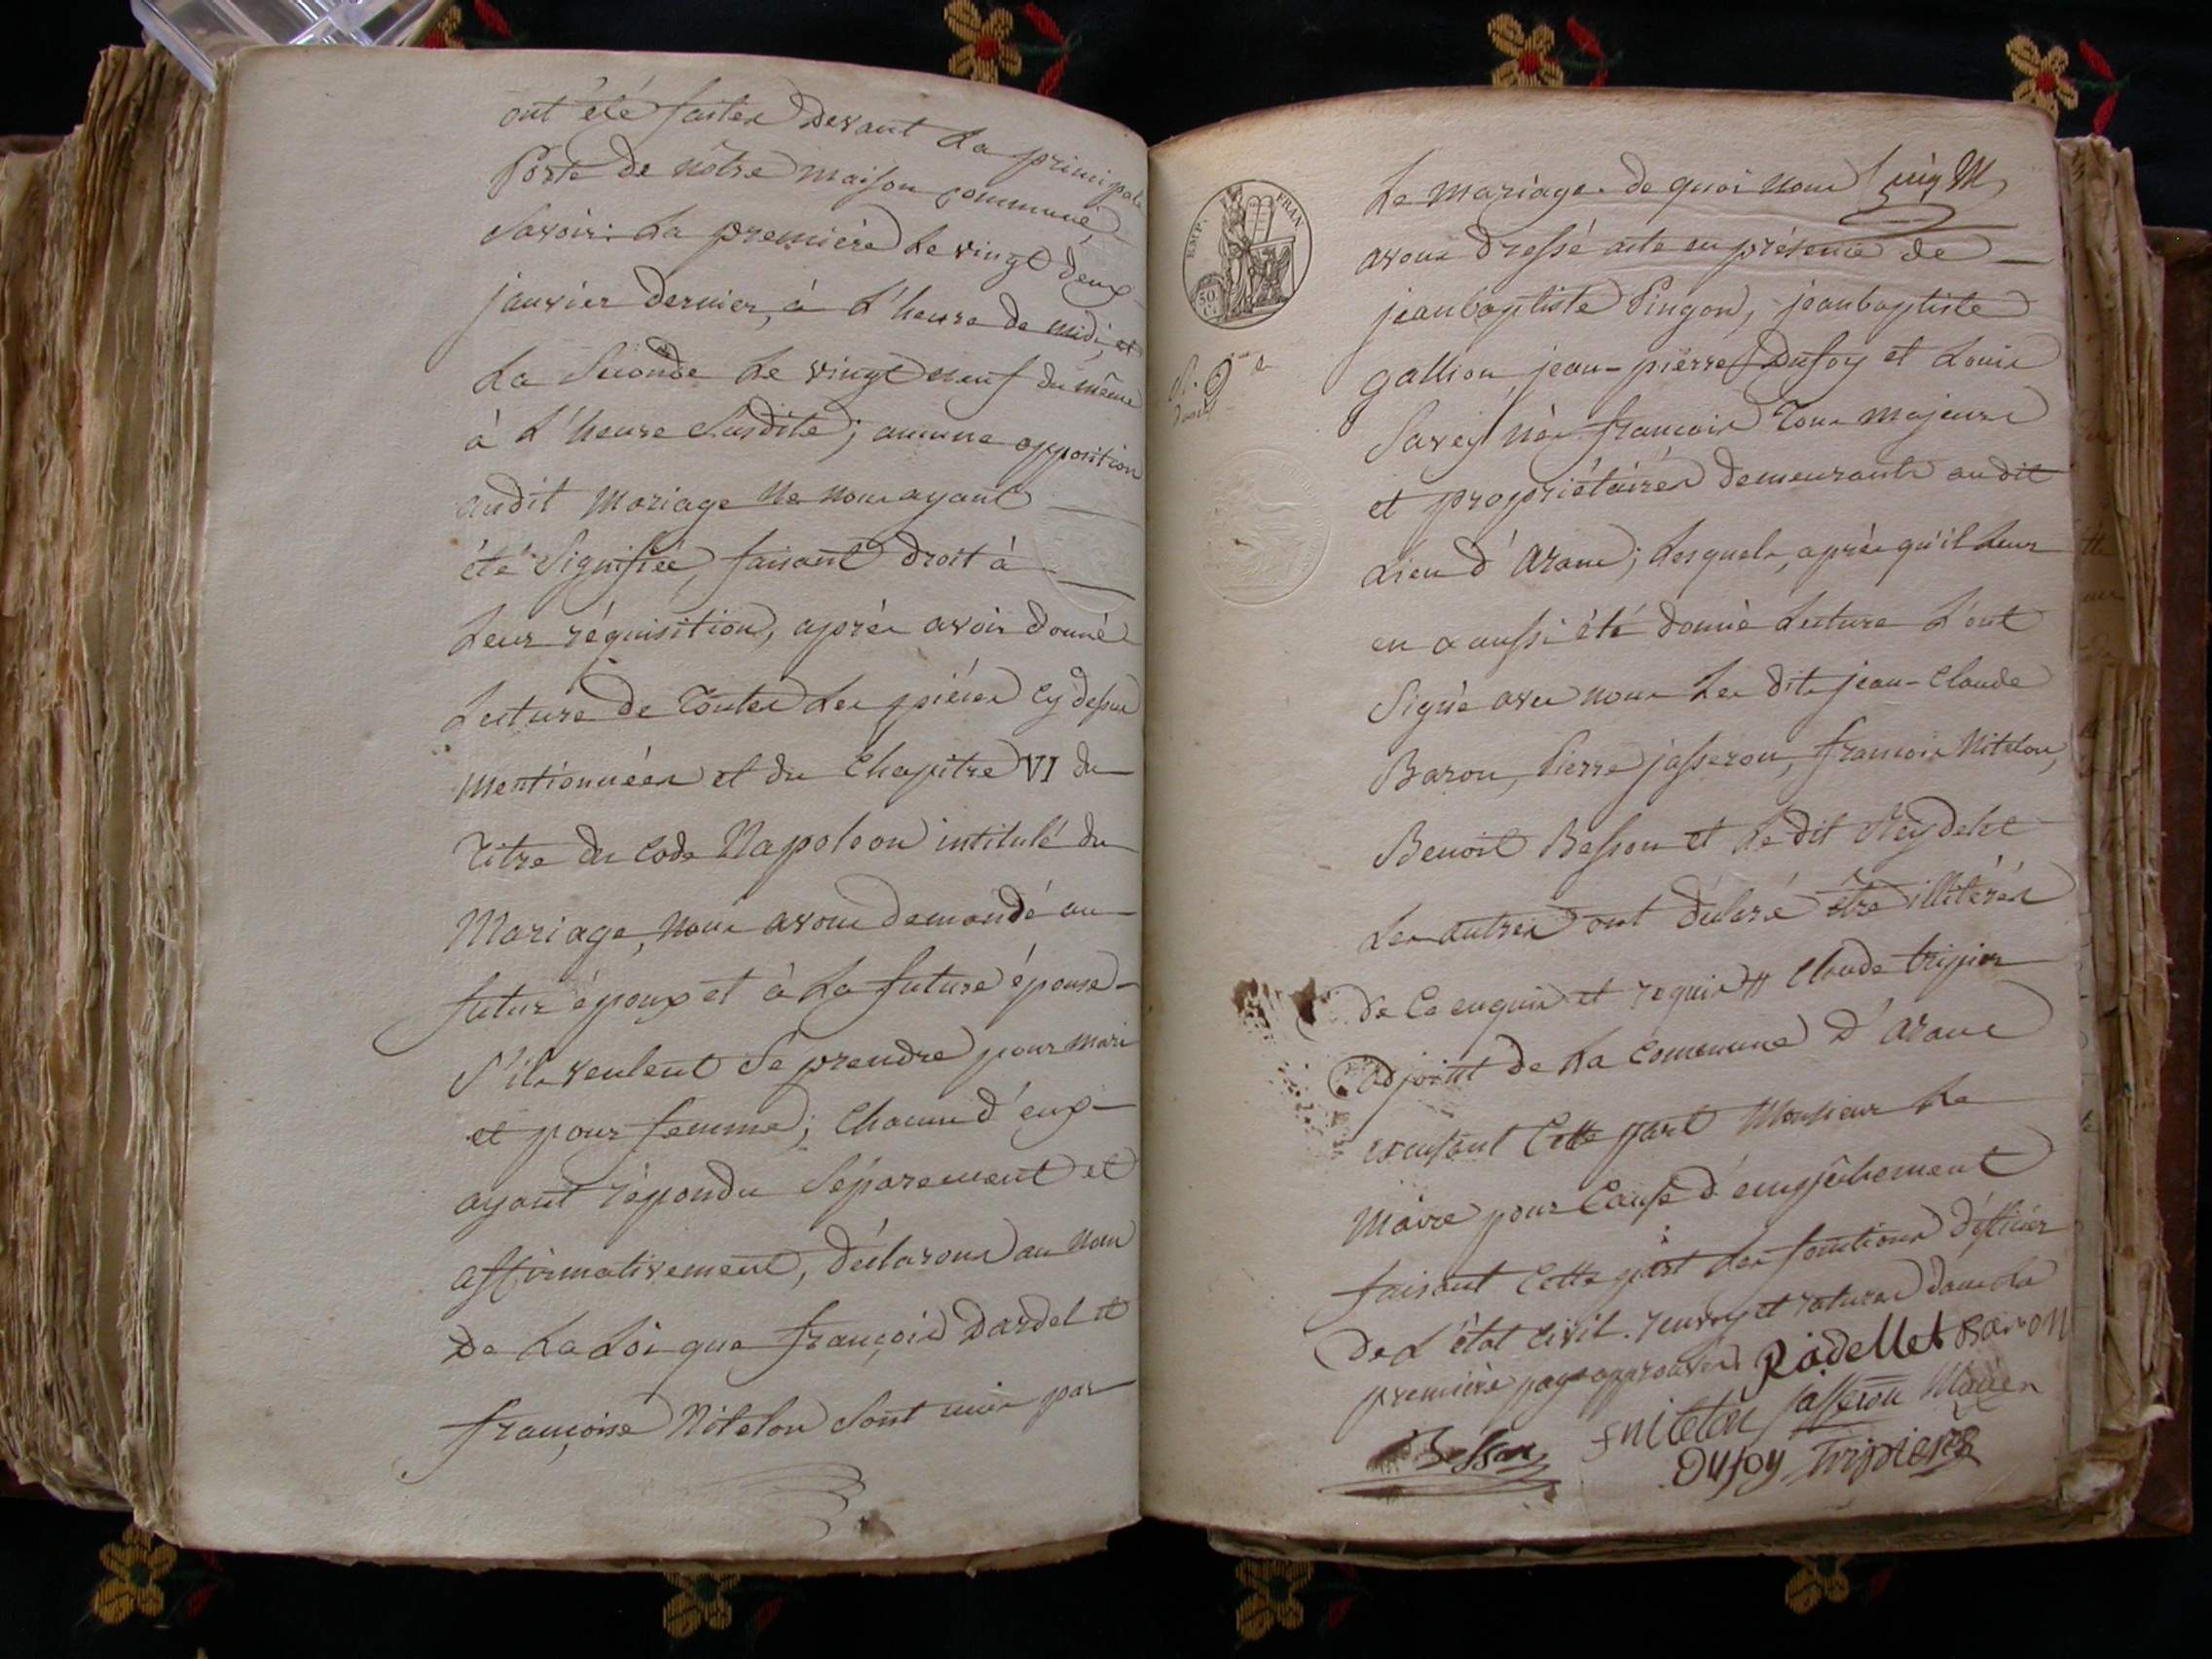 ont été faites devant la principale
Porte de nôtre maison commune,
Savoir: la première le vingt deux
janvier dernier, à l'heure de midi, et
la seconde le vingt neuf du même
à l'heure susdite; aucune opposition
audit mariage ne nous ayant
été signifiée, faisant droit à
leur réquisition, après avoir donné
lecture de toutes les pièces cy dessus
mentionnées et du Chapitre VI du
titre du Code Napoleon intitulé du
Mariage, nous avons demandé au
futur époux et à la future épouse
s'ils veulent se prendre pour mari
et pour femme; chacun d'eux
ayant répondu séparement et
affirmativement, déclarons au nom
de la loi que françois Dardel et
françoise Nitelon sont unis par
EMP. FRAN
50
le mariage. de quoi nous
avons dressé acte en présence de
jean baptiste Pingon, jean baptiste
gallion, jean-pierre Dufoy et Louis
Savey né françois tous majeurs
et propriétaires demeurants audit
lieu d'arane; lesquels, après qu'il leur
en a aussi été donné lecture l'ont
signé avec nous les dits jean-Claude
Baron, Pierre jasseron, francois Nitelon,
Benoit Besson et le dit
les autres ont déclaré être illitérés
de ce enquis et requis Claude tripier
adjoint de la Commune d'arane
exercant cette part Monsieur le
Maire pour cause d'empêchement
faisant cette part les fonctions d'officier
de l'état civil. renvoy et ratures dans la
première page approuvés Ridellet Baron
fnitelon jasseron
Besson Dufoy tripier